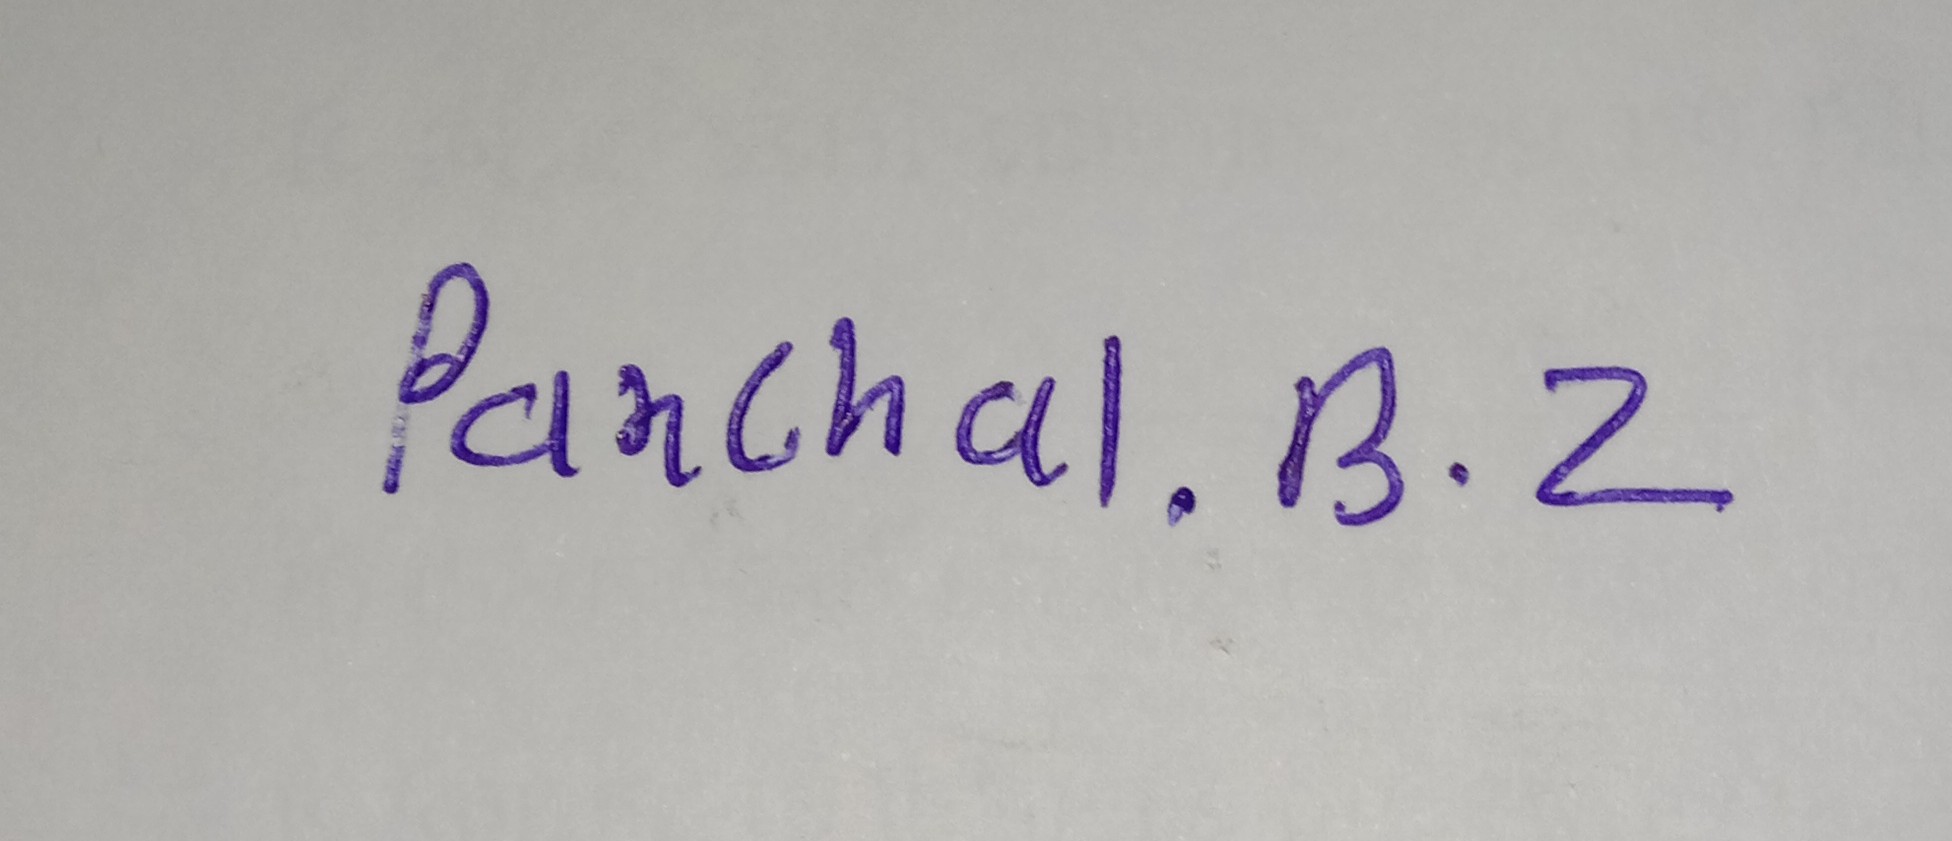 Panchal. B. Z